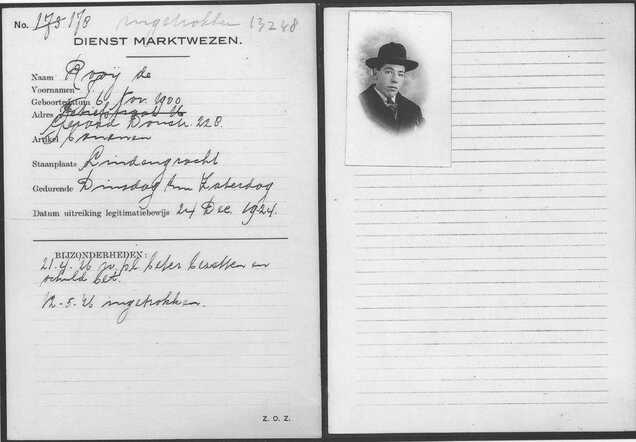 No. 175 178 ingetrokken 13248
DIENST MARKTWEZEN.
Naam Rooij de
Voornamen J.
Geboortedatum 6 Nov. 1900
Adres
Gerard Doustr. 228.
Artikel bananen
Staanplaats Lindengracht
Gedurende Dinsdag t/m Zaterdag
Datum uitreiking legitimatiebewijs 24 Dec. 1924.
BIJZONDERHEDEN:
21.4.26 pl. beter bezetten en
schuld bet.
12-5.26 ingetrokken.
Z. O. Z.